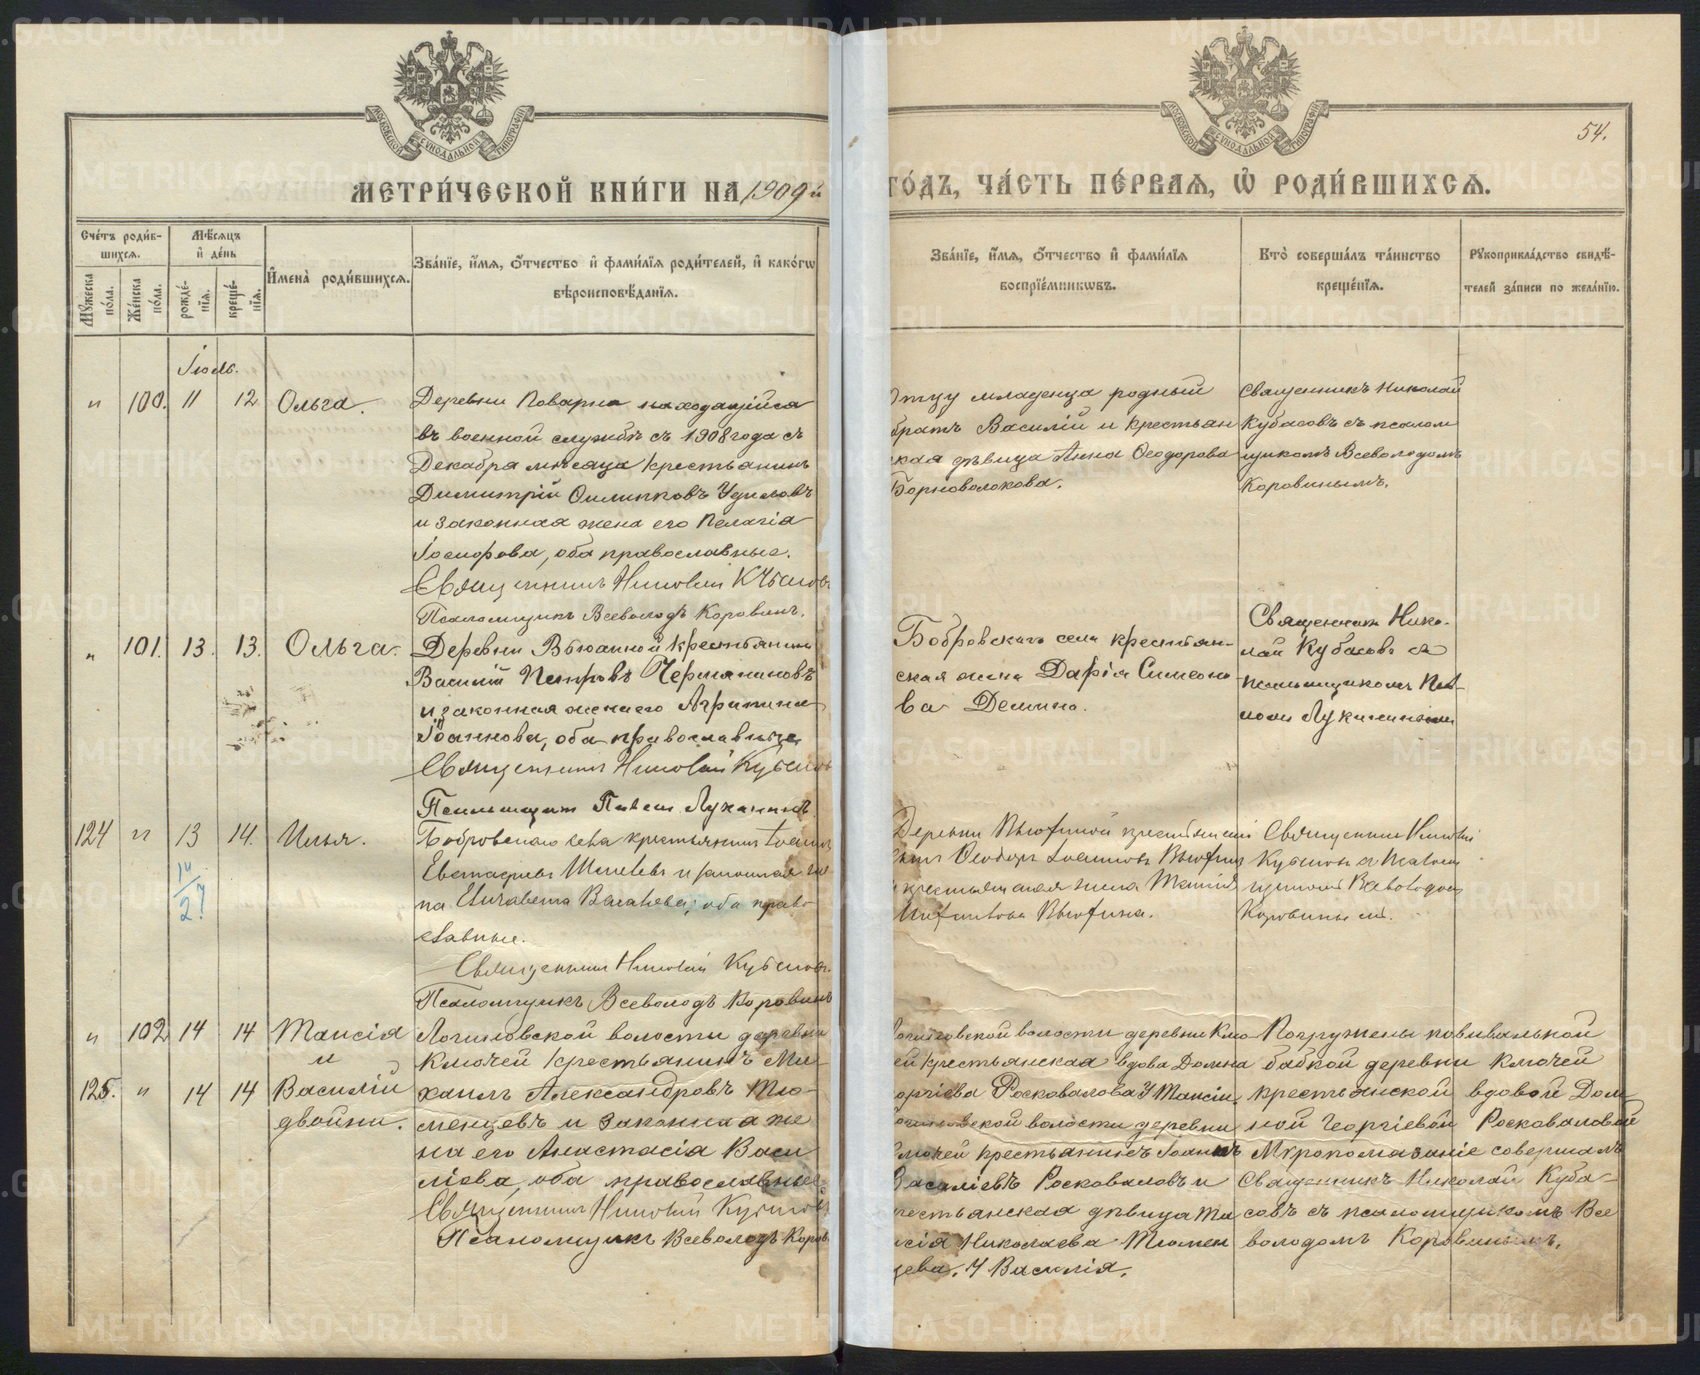 54.
МЕТРИ́ЧЕСКОЙ КНИ́ГИ НА 1909й
ГО́ДЪ, ЧА́СТЬ ПЕ́РВАЯ, Ѡ РОДИ́ВШИХСЯ.
Сче́тъ роди́в-
шихся.
Мѣ́сяцъ
и де́нь
Му́жеска по́ла.
Же́нска по́ла.
рожде́-
нїя.
креще́-
нїя.
И҆мена̀ роди́вшихся.
Зва́нїе, и҆́мя, ѻ҆́тчество и҆ фами́лїя роди́телей, и҆ како́гѡ
вѣроисповѣ́данїя.
Зва́нїе, и҆́мя, ѻ҆́тчество и҆ фами́лїя
воспрїе́мниковъ.
Кто̀ соверша́лъ та́инство
креще́нїя.
Рꙋкоприкла́дство свидѣ́-
телей за́писи по жела́нїю.
Іюль.
" 100. 11 12 Ольга.
Деревни Поварня находящійся
въ военной службѣ съ 1908 года съ
Декабря мѣсяца крестьянинъ
Димитрій
и законная жена его Пелагія
оба православные.
Священникъ Николай Кубасовъ
Псаломщикъ Всеволодъ Коровинъ.
Отцу младенца родный
братъ Василій и крестьян
ская дѣвица Анна Ѳеодорова
Борноволокова.
Священникъ Николай
Кубасовъ съ псалом
щикомъ Всеволодомъ
Коровинымъ.
" 101. 13. 13. Ольга.
Деревни Вьюхиной крестьянинъ
Василій Петровъ Чермяниновъ
и законная жена его Агрипина
Іоаннова, оба православные
Священникъ Николай Кубасовъ
Псаломщикъ Павелъ Луканинъ.
Бобровскаго села крестьян-
ская жена Дарія Симеоно
ва Демина.
Священникъ Нико-
лай Кубасовъ съ
псаломщикомъ Пав-
ломъ Луканинымъ
124 " 13 14. Илья.
14/27
Бобровскаго села крестьянинъ Іоаннъ
и законная же
на Елизавета оба право
славные.
Священникъ Николай Кубасовъ.
Псаломщикъ Всеволодъ Коровинъ
Деревни Вьюхиной крестьянскій
сынъ Ѳеодоръ Іоанновъ Вьюхинъ
и крестьянская жена
Вьюхина.
Священникъ Николай
Кубасовъ съ псалом
щикомъ Всеволодомъ
Коровинымъ.
" 102 14 14 Таисія
и
125. " 14 14 Василій
двойни.
Логиновской волости деревни
Ключей крестьянинъ Ми-
хаилъ Александровъ Тю-
менцевъ и законная же
на его Анастасія Васи
ліева, оба православные.
Священникъ Николай Кубасовъ
Псаломщикъ Всеволодъ Коров.
Логиновской волости деревни Клю-
чей крестьянская вдова Домна
Георгіева Росковалова У Таисіи.
Логиновской волости деревни
Ключей крестьянинъ Іоаннъ
Василіевъ Росковаловъ и
крестьянская дѣвица Та
исія Николаева Тюмен
цева. У Василія.
Погружены повивальной
бабкой деревни Ключей
крестьянской вдовой Дом-
ной Георгіевой Росковаловой
Мѵропомазаніе совершалъ
Священникъ Николай Куба-
совъ съ псаломщикомъ Все
володомъ Коровинымъ.
METRIKI.GASO-URAL.RU